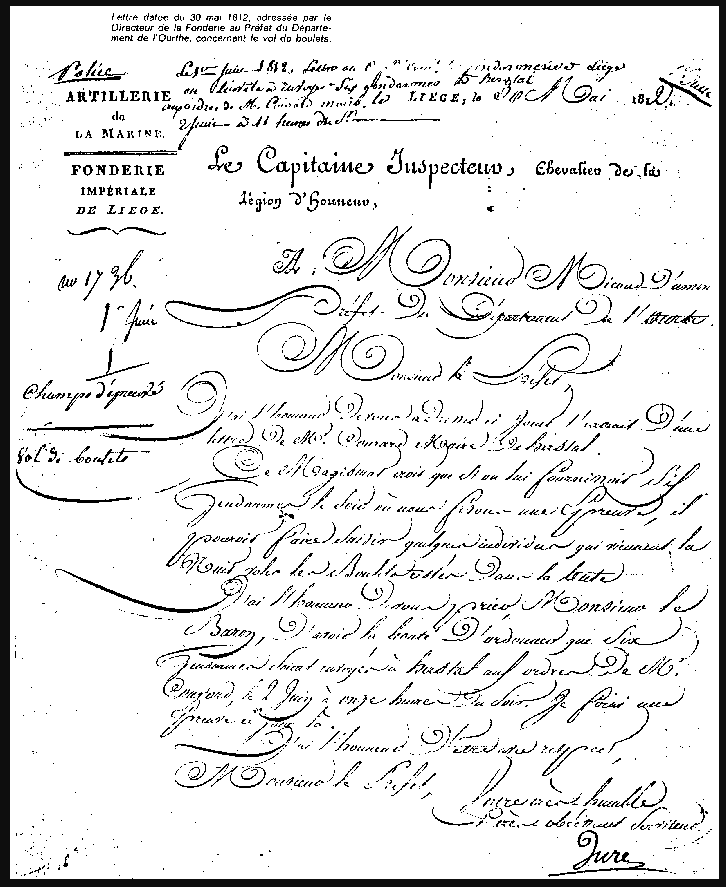 Lettre datée du 30 mai 1812, adressée par le
Directeur de la Fonderie au Préfet du Départe-
ment de l'Ourthe, concernant le vol de boulets.
Police
Le 1er Juin 1812, Lettre au gendarmerie Liège
Six gendarmes à herstal
aux ordres de M. maire, le
2 Juin à 11 heures du Soir
ARTILLERIE
de
LA MARINE.
LIEGE, le Mai 1812.
FONDERIE
IMPÉRIALE
DE LIEGE.
Le Capitaine Inspecteur, Chevalier de la
Légion d'Honneur,
no 1736.
1er Juin
Champs d'épreuves
Vol de boulets
A Monsieur Micoud D'umon
Préfet Du Département De l'Ourthe
Monsieur le Préfet,
J'ai l'honneur De vous adresser ci joint l'extrait D'une
lettre De Mr. Maire De herstal.
Ce Magistrat croit que si on lui fournissait Six
Gendarmes le Soir où nous ferons une Epreuve, il
pourroit faire saisir quelques individus qui viennent la
Nuit voler les Boulets restés Dans la butte
J'ai l'honneur De vous prier Monsieur le
Baron, D'avoir la bonté D'ordonner que Six
Gendarmes soient envoyés à herstal aux ordres De Mr.
le 2 Juin à onze heures Du Soir. Je ferai une
Epreuve ce jour là.
J'ai l'honneur D'être avec respect,
Monsieur le Préfet,
Votre très humble
& très obéissant Serviteur